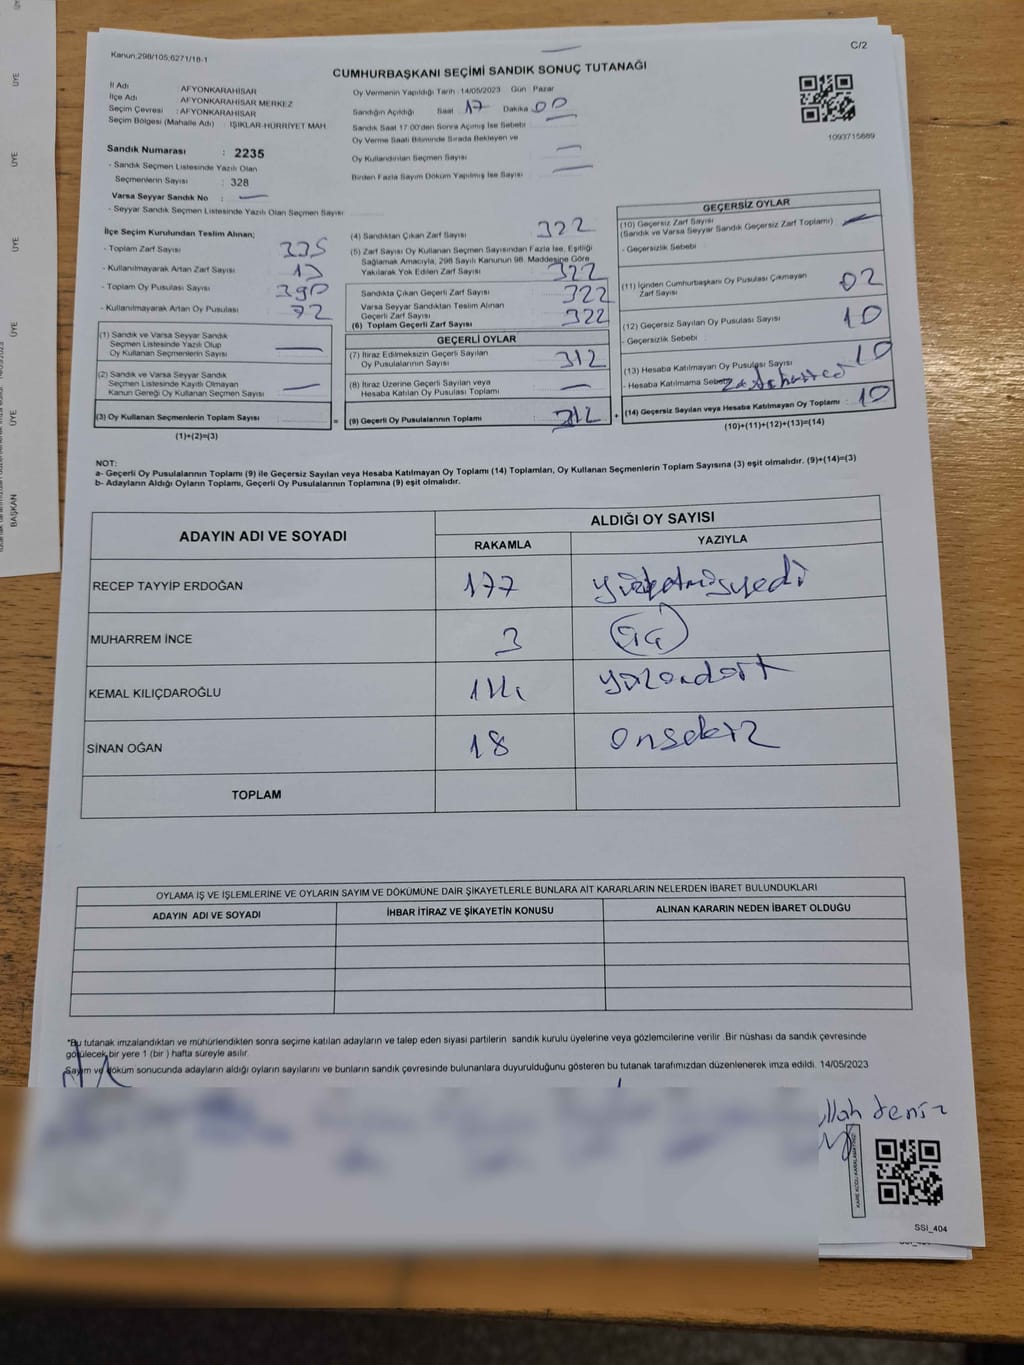 Kanun:298/105;6271/18-1
C/2
CUMHURBAŞKANI SEÇİMİ SANDIK SONUÇ TUTANAĞI
İl Adı : AFYONKARAHİSAR
İlçe Adı : AFYONKARAHİSAR MERKEZ
Seçim Çevresi : AFYONKARAHİSAR
Seçim Bölgesi (Mahalle Adı) IŞIKLAR-HÜRRİYET MAH
Sandık Numarası : 2235
- Sandık Seçmen Listesinde Yazılı Olan
Seçmenlerin Sayısı : 328
Varsa Seyyar Sandık No : —
- Seyyar Sandık Seçmen Listesinde Yazılı Olan Seçmen Sayısı
Oy Vermenin Yapıldığı Tarih : 14/05/2023 Gün Pazar
Sandığın Açıldığı Saat : 17 Dakika 00
Sandık Saat 17:00'den Sonra Açılmış İse Sebebi
Oy Verme Saati Bitiminde Sırada Bekleyen ve
Oy Kullandırılan Seçmen Sayısı —
Birden Fazla Sayım Döküm Yapılmış İse Sayısı —
1093715669
İlçe Seçim Kurulundan Teslim Alınan;
- Toplam Zarf Sayısı 335
- Kullanılmayarak Artan Zarf Sayısı 13
- Toplam Oy Pusulası Sayısı 390
- Kullanılmayarak Artan Oy Pusulası 72
(1) Sandık ve Varsa Seyyar Sandık
Seçmen Listesinde Yazılı Olup
Oy Kullanan Seçmenlerin Sayısı —
(2) Sandık ve Varsa Seyyar Sandık
Seçmen Listesinde Kayıtlı Olmayan
Kanun Gereği Oy Kullanan Seçmen Sayısı —
(3) Oy Kullanan Seçmenlerin Toplam Sayısı =
(1)+(2)=(3)
(4) Sandıktan Çıkan Zarf Sayısı 322
(5) Zarf Sayısı Oy Kullanan Seçmen Sayısından Fazla İse, Eşitliği
Sağlamak Amacıyla, 298 Sayılı Kanunun 98. Maddesine Göre
Yakılarak Yok Edilen Zarf Sayısı 322
Sandıkta Çıkan Geçerli Zarf Sayısı 322
Varsa Seyyar Sandıktan Teslim Alınan
Geçerli Zarf Sayısı 322
(6) Toplam Geçerli Zarf Sayısı
GEÇERLİ OYLAR
(7) İtiraz Edilmeksizin Geçerli Sayılan
Oy Pusulalarının Sayısı 312
(8) İtiraz Üzerine Geçerli Sayılan veya
Hesaba Katılan Oy Pusulası Toplamı —
(9) Geçerli Oy Pusulalarının Toplamı 312 +
GEÇERSİZ OYLAR
(10) Geçersiz Zarf Sayısı
(Sandık ve Varsa Seyyar Sandık Geçersiz Zarf Toplamı) —
- Geçersizlik Sebebi
(11) İçinden Cumhurbaşkanı Oy Pusulası Çıkmayan
Zarf Sayısı 02
(12) Geçersiz Sayılan Oy Pusulası Sayısı 10
- Geçersizlik Sebebi
(13) Hesaba Katılmayan Oy Pusulası Sayısı 10
- Hesaba Katılmama Sebebi
(14) Geçersiz Sayılan veya Hesaba Katılmayan Oy Toplamı : 10
(10)+(11)+(12)+(13)=(14)
NOT:
a- Geçerli Oy Pusulalarının Toplamı (9) ile Geçersiz Sayılan veya Hesaba Katılmayan Oy Toplamı (14) Toplamları, Oy Kullanan Seçmenlerin Toplam Sayısına (3) eşit olmalıdır. (9)+(14)=(3)
b- Adayların Aldığı Oyların Toplamı, Geçerli Oy Pusulalarının Toplamına (9) eşit olmalıdır.
ADAYIN ADI VE SOYADI
ALDIĞI OY SAYISI
RAKAMLA YAZIYLA
RECEP TAYYİP ERDOĞAN 177 yüzyetmişyedi
MUHARREM İNCE 3 üç
KEMAL KILIÇDAROĞLU 114 yüzondört
SİNAN OĞAN 18 onsekiz
TOPLAM
OYLAMA İŞ VE İŞLEMLERİNE VE OYLARIN SAYIM VE DÖKÜMÜNE DAİR ŞİKAYETLERLE BUNLARA AİT KARARLARIN NELERDEN İBARET BULUNDUKLARI
ADAYIN ADI VE SOYADI İHBAR İTİRAZ VE ŞİKAYETİN KONUSU ALINAN KARARIN NEDEN İBARET OLDUĞU
*Bu tutanak imzalandıktan ve mühürlendikten sonra seçime katılan adayların ve talep eden siyasi partilerin sandık kurulu üyelerine veya gözlemcilerine verilir. Bir nüshası da sandık çevresinde
görülecek bir yere 1 (bir ) hafta süreyle asılır.
Sayım ve döküm sonucunda adayların aldığı oyların sayılarını ve bunların sandık çevresinde bulunanlara duyurulduğunu gösteren bu tutanak tarafımızdan düzenlenerek imza edildi. 14/05/2023
ullah deniz
SSI_404
BAŞKAN ÜYE ÜYE ÜYE ÜYE ÜYE